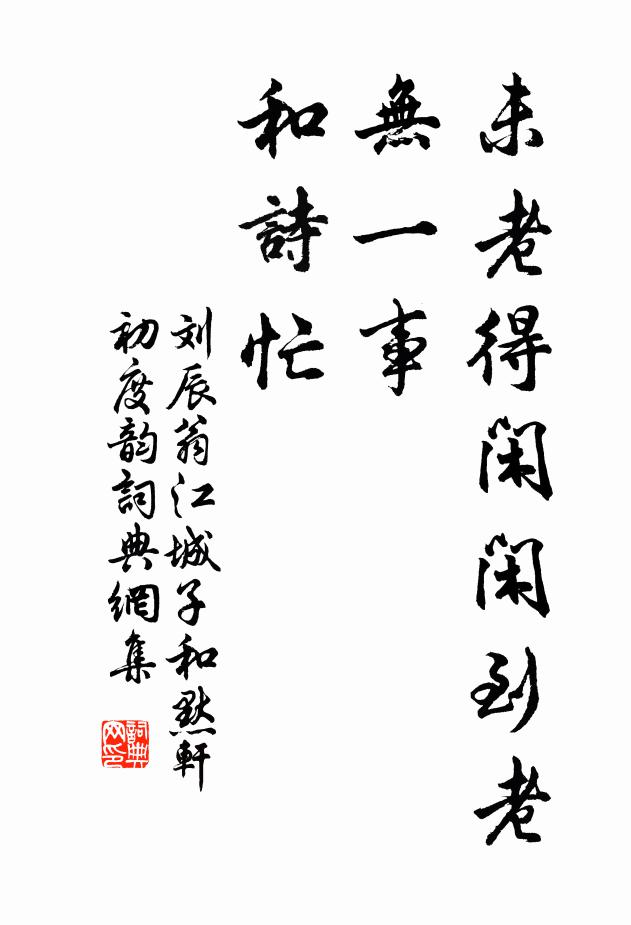 未老得閑閑到老
無一事
和詩忙
刘辰翁江城子和默軒
初度韵詞典網集
詞典網印